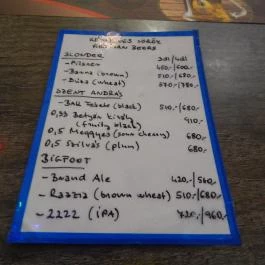 KÉZMŰVES SÖRÖK
ARTISAN BEERS
BLONDER 3dl/4dl
- Pilsner 450,-/600,-
- Barna (brown) 510,-/680,-
- Búza (wheat) /780,-
SZENT ANDRÁS
- BAK Fekete (black) 510,-/680,-
0,33 Betyár Király 910,-
(fruity black)
0,5 Meggyes (sour cherry) 680,-
0,5 Szilvás (plum) 680,-
BIGFOOT
- Brand Ale 420,-/560,-
- Razzia (brown wheat) 510,/680,-
- 2222 (IPA) 720,-/960,-